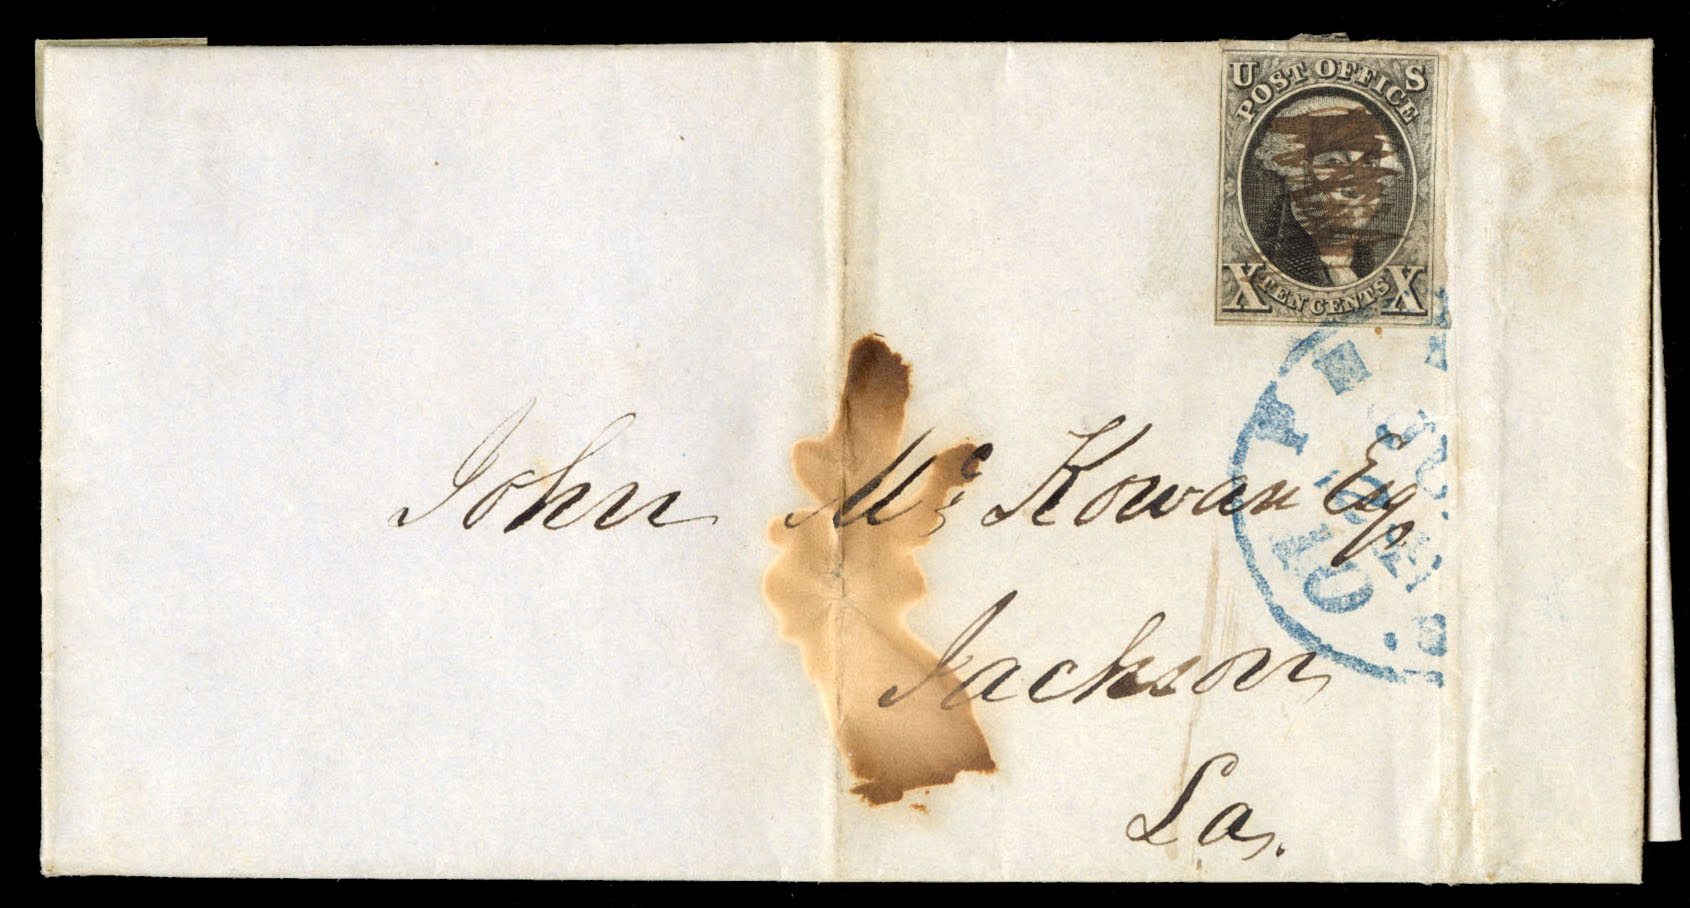 U S
POST OFFICE
X TEN CENTS X
John Mc Kowan Esq
Jackson
La.
10